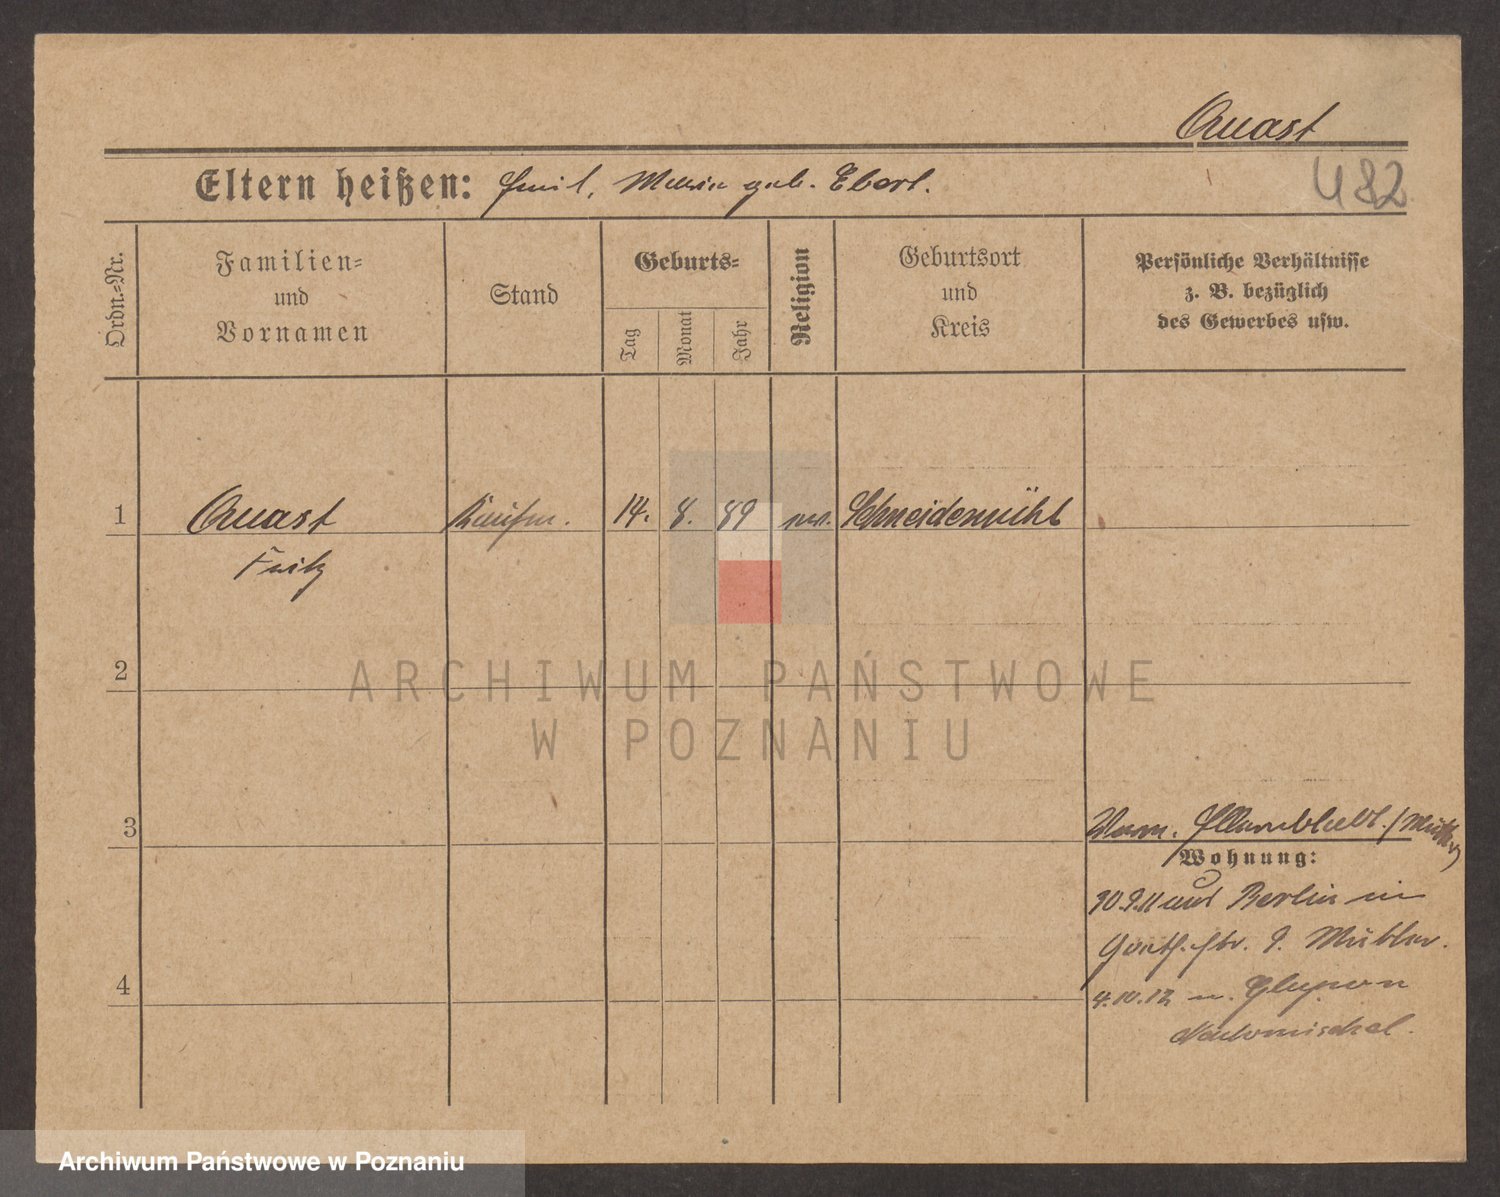 Quast
482
Eltern heißen: Emil, Maria geb. Ebert.
Ordn.-Nr.
Familien-
und
Vornamen
Stand
Geburts-
Tag
Monat
Jahr
Religion
Geburtsort
und
Kreis
Persönliche Verhältnisse
z. B. bezüglich
des Gewerbes usw.
1 Quast Kaufm. 14. 8. 89 ev. Schneidemühl
Fritz
2
3
Wohnung:
10.9.11 aus Berlin in
9. Müller.
4.10.12 n.
Neutomischel.
4
ARCHIWUM PAŃSTWOWE
W POZNANIU
Archiwum Państwowe w Poznaniu